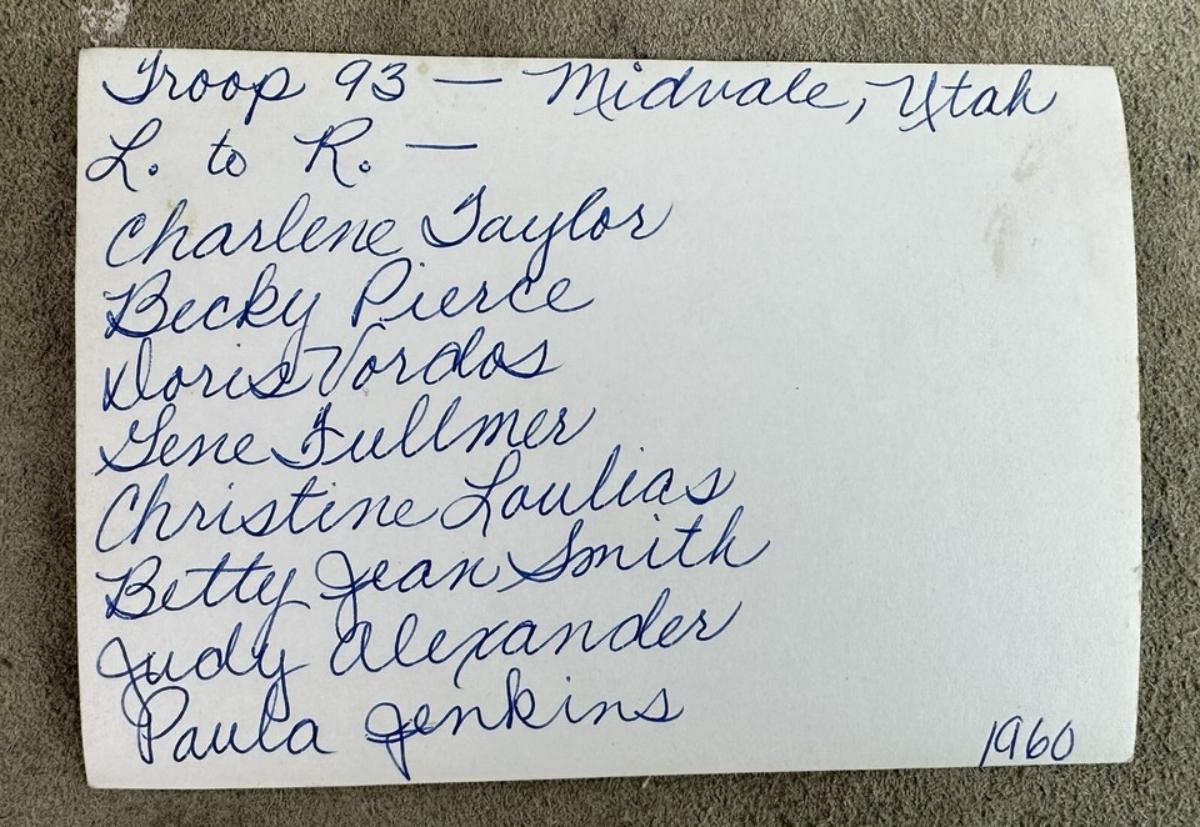 Troop 93 — Midvale, Utah
L. to R. —
Charlene Taylor
Becky Pierce
Doris Vordos
Gene Fullmer
Christine Loulias
Betty Jean Smith
Judy Alexander
Paula Jenkins
1960